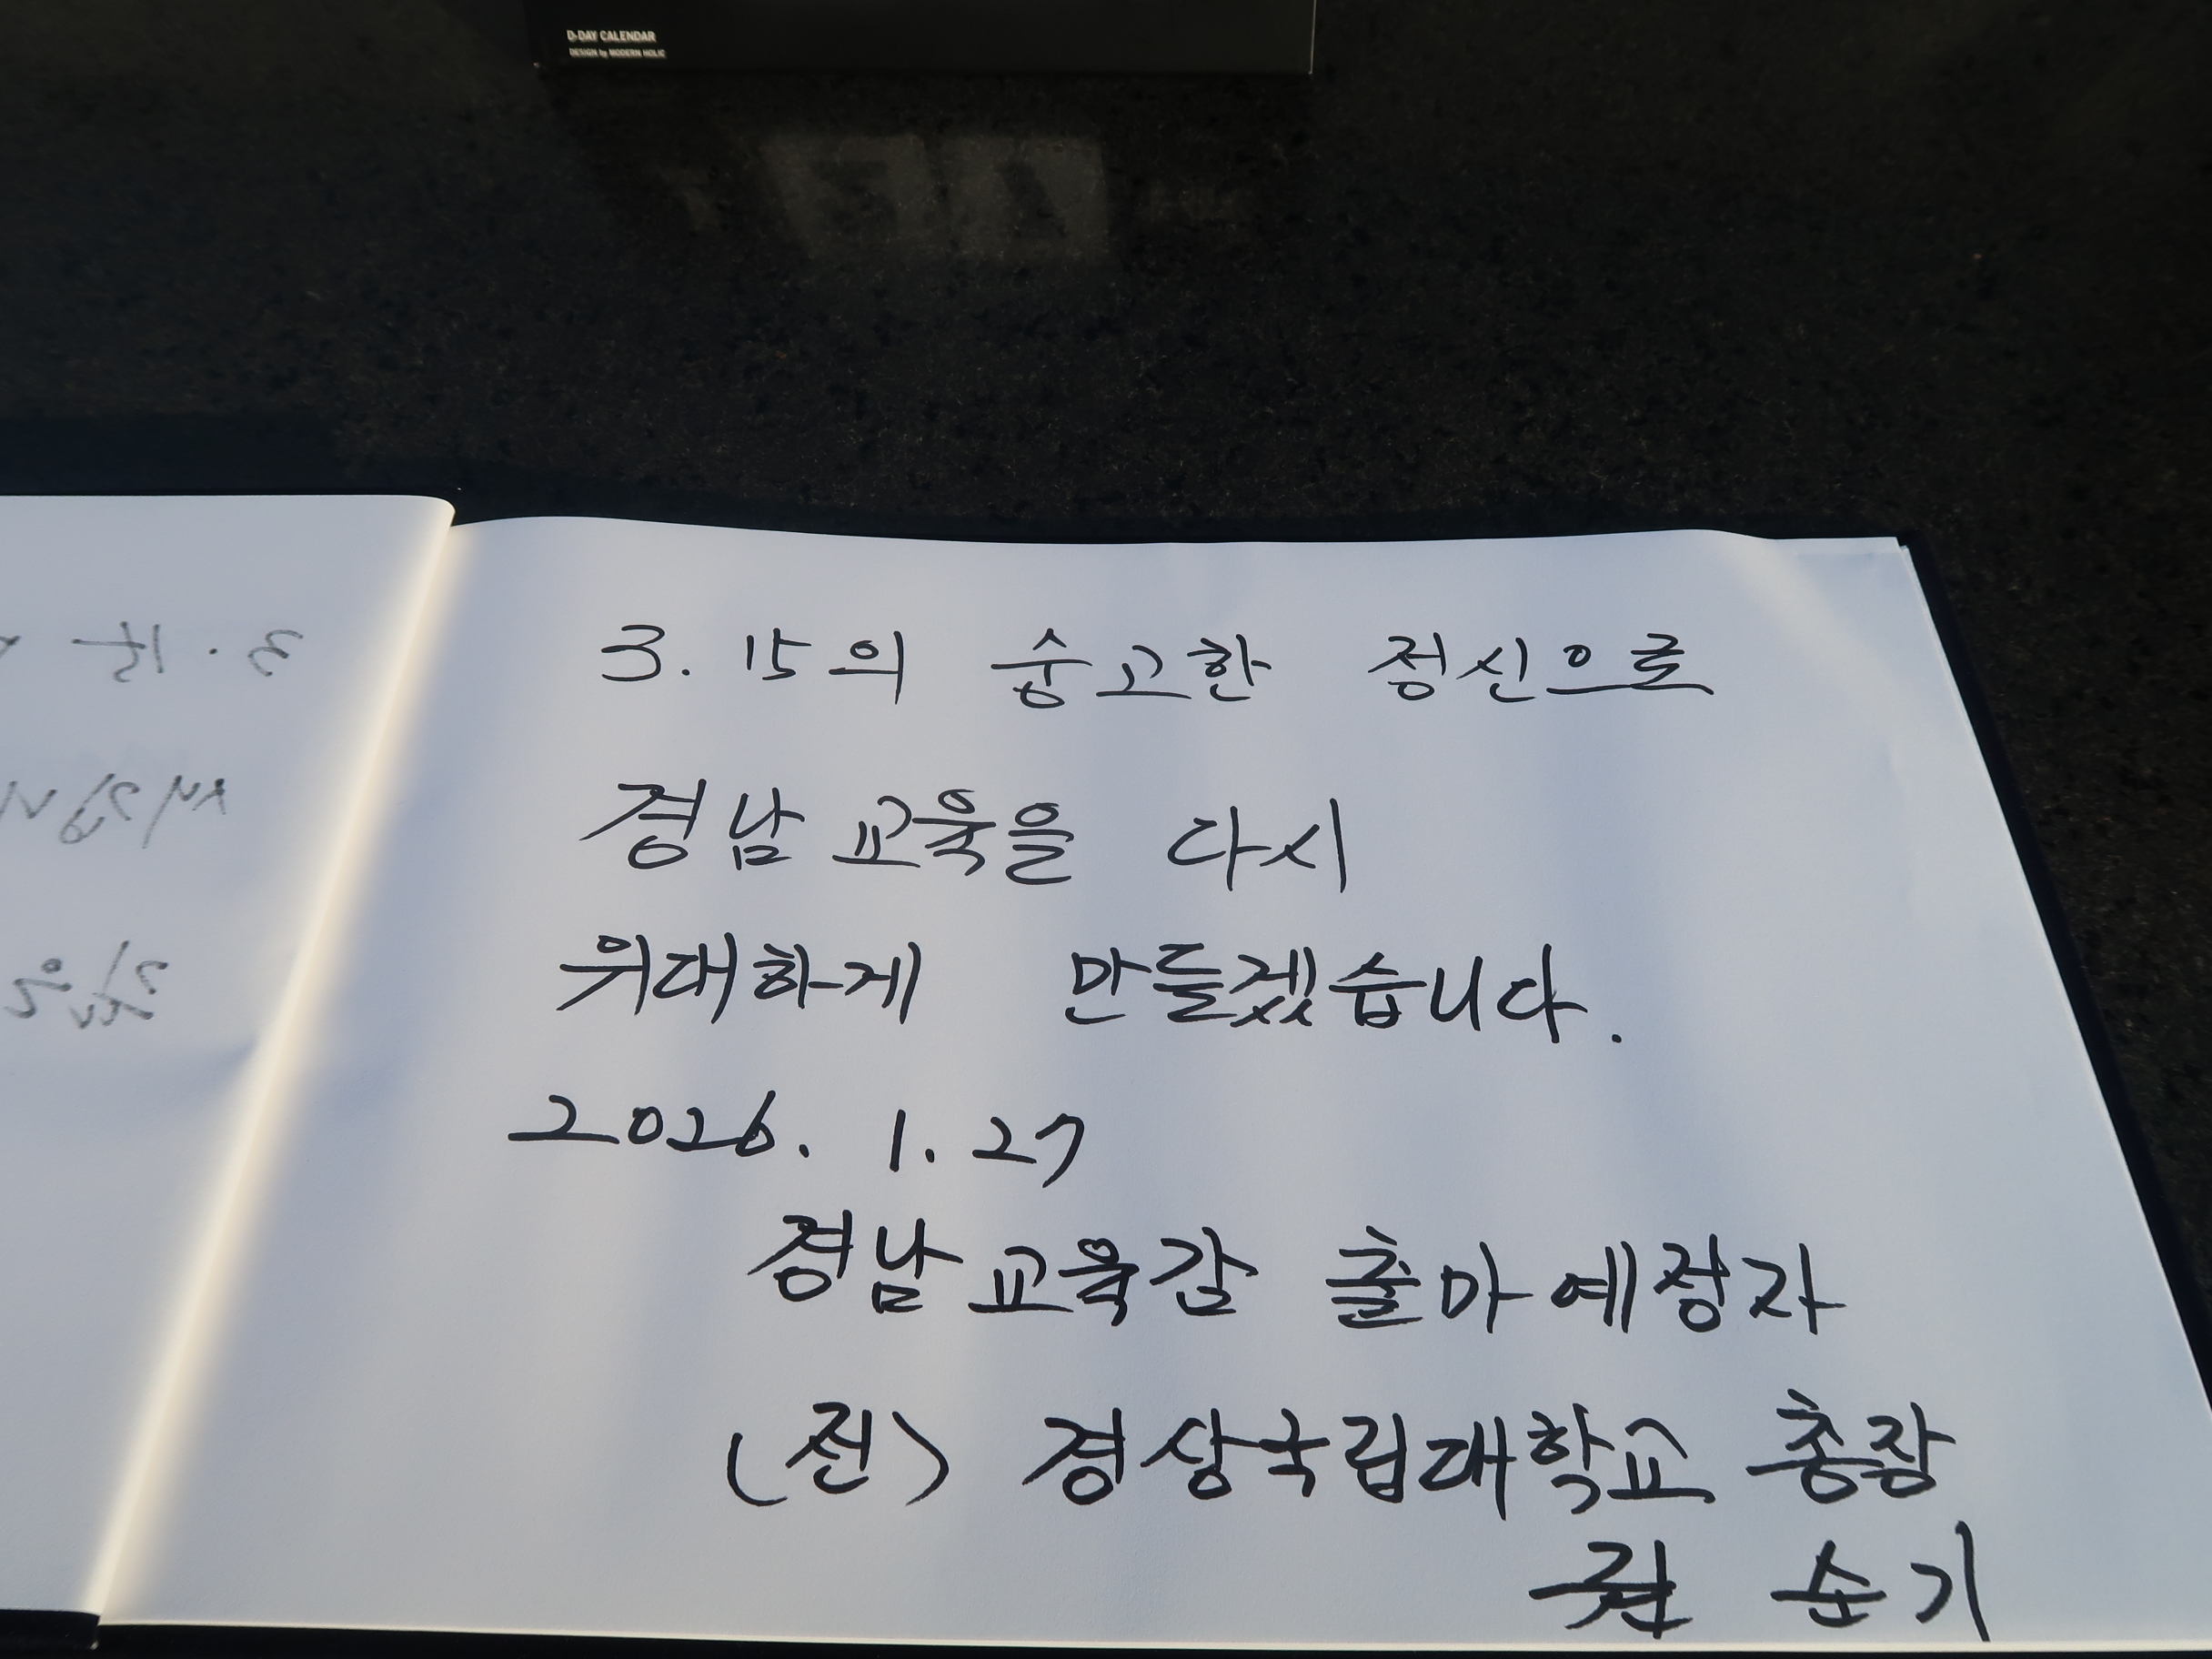 D-DAY CALENDAR
DESIGN by MODERN HOLIC
3.15의 숭고한 정신으로
경남교육을 다시
위대하게 만들겠습니다.
2026. 1. 27
경남교육감 출마예정자
(전) 경상국립대학교 총장
권순기
3. 15